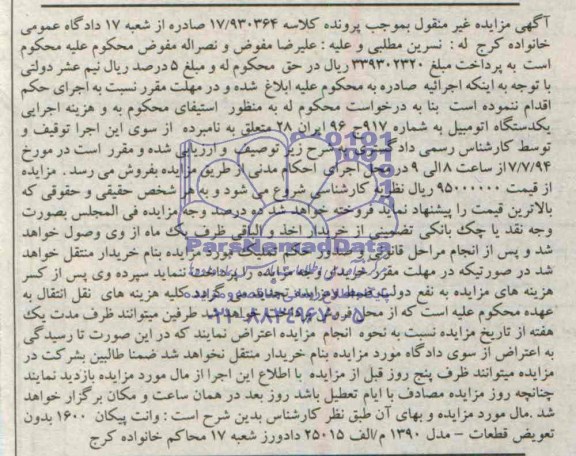 آگهی مزایده غیر منقول بموجب پرونده کلاسه ۱۷/۹۳۰۳۶۴ صادره از شعبه ۱۷ دادگاه عمومی
خانواده کرج له : نسرین مطلبی و علیه : علیرضا مفوض و نصراله مفوض محکوم علیه محکوم
است به پرداخت مبلغ ۳۳۹۳۰۲۳۲۰ ریال در حق محکوم له و مبلغ ۵ درصد ریال نیم عشر دولتی
با توجه به اینکه اجرائیه صادره به محکوم علیه ابلاغ شده و در مهلت مقرر نسبت به اجرای حکم
اقدام ننموده است بنا به درخواست محکوم له به منظور استیفای محکوم به و هزینه اجرایی
یکدستگاه اتومبیل به شماره ۹۱۷ج ۹۶ ایران ۲۸ متعلق به نامبرده از سوی این اجرا توقیف و
توسط کارشناس رسمی دادگستری به شرح زیر توصیف و ارزیابی شده و مقرر است در مورخ
۱۷/۷/۹۴از ساعت ۸الی ۹ درمحل اجرای احکام مدنی از طریق مزایده بفروش می رسد . مزایده
از قیمت ۹۵۰۰۰۰۰۰ ریال نظریه کارشناسی شروع می شود و به هر شخص حقیقی و حقوقی که
بالاترین قیمت را پیشنهاد نماید فروخته خواهد شد ده درصد وجه مزایده فی المجلس بصورت
وجه نقد یا چک بانکی تضمینی از خریدار اخذ و الباقی ظرف یک ماه از وی وصول خواهد
شد و پس از انجام مراحل قانونی و صدور حکم تملیک مورد مزایده بنام خریدار منتقل خواهد
شد در صورتیکه در مهلت مقرر خریدار وجه مزایده را پرداخت ننماید سپرده وی پس از کسر
هزینه های مزایده به نفع دولت ضبط و مزایده تجدید می گردد کلیه هزینه های نقل انتقال به
عهده محکوم علیه است که از محل فروش پرداخت خواهد شد طرفین میتوانند ظرف مدت یک
هفته از تاریخ مزایده نسبت به نحوه انجام مزایده اعتراض نمایند که در این صورت تا رسیدگی
به اعتراض از سوی دادگاه مورد مزایده بنام خریدار منتقل نخواهد شد ضمنا طالبین بشرکت در
مزایده میتوانند ظرف پنج روز قبل از مزایده با اطلاع این اجرا از مال مورد مزایده بازدید نمایند
چنانچه روز مزایده مصادف با ایام تعطیل باشد روز بعد در همان ساعت و مکان برگزار خواهد
شد .مال مورد مزایده و بهای آن طبق نظر کارشناس بدین شرح است : وانت پیکان ۱۶۰۰ بدون
تعویض قطعات – مدل ۱۳۹۰ م/الف ۲۵۰۱۵ دادورز شعبه ۱۷ محاکم خانواده کرج
ParsNamadData
۰۲۱-۸۸۳۴۹۶۷۰-۵